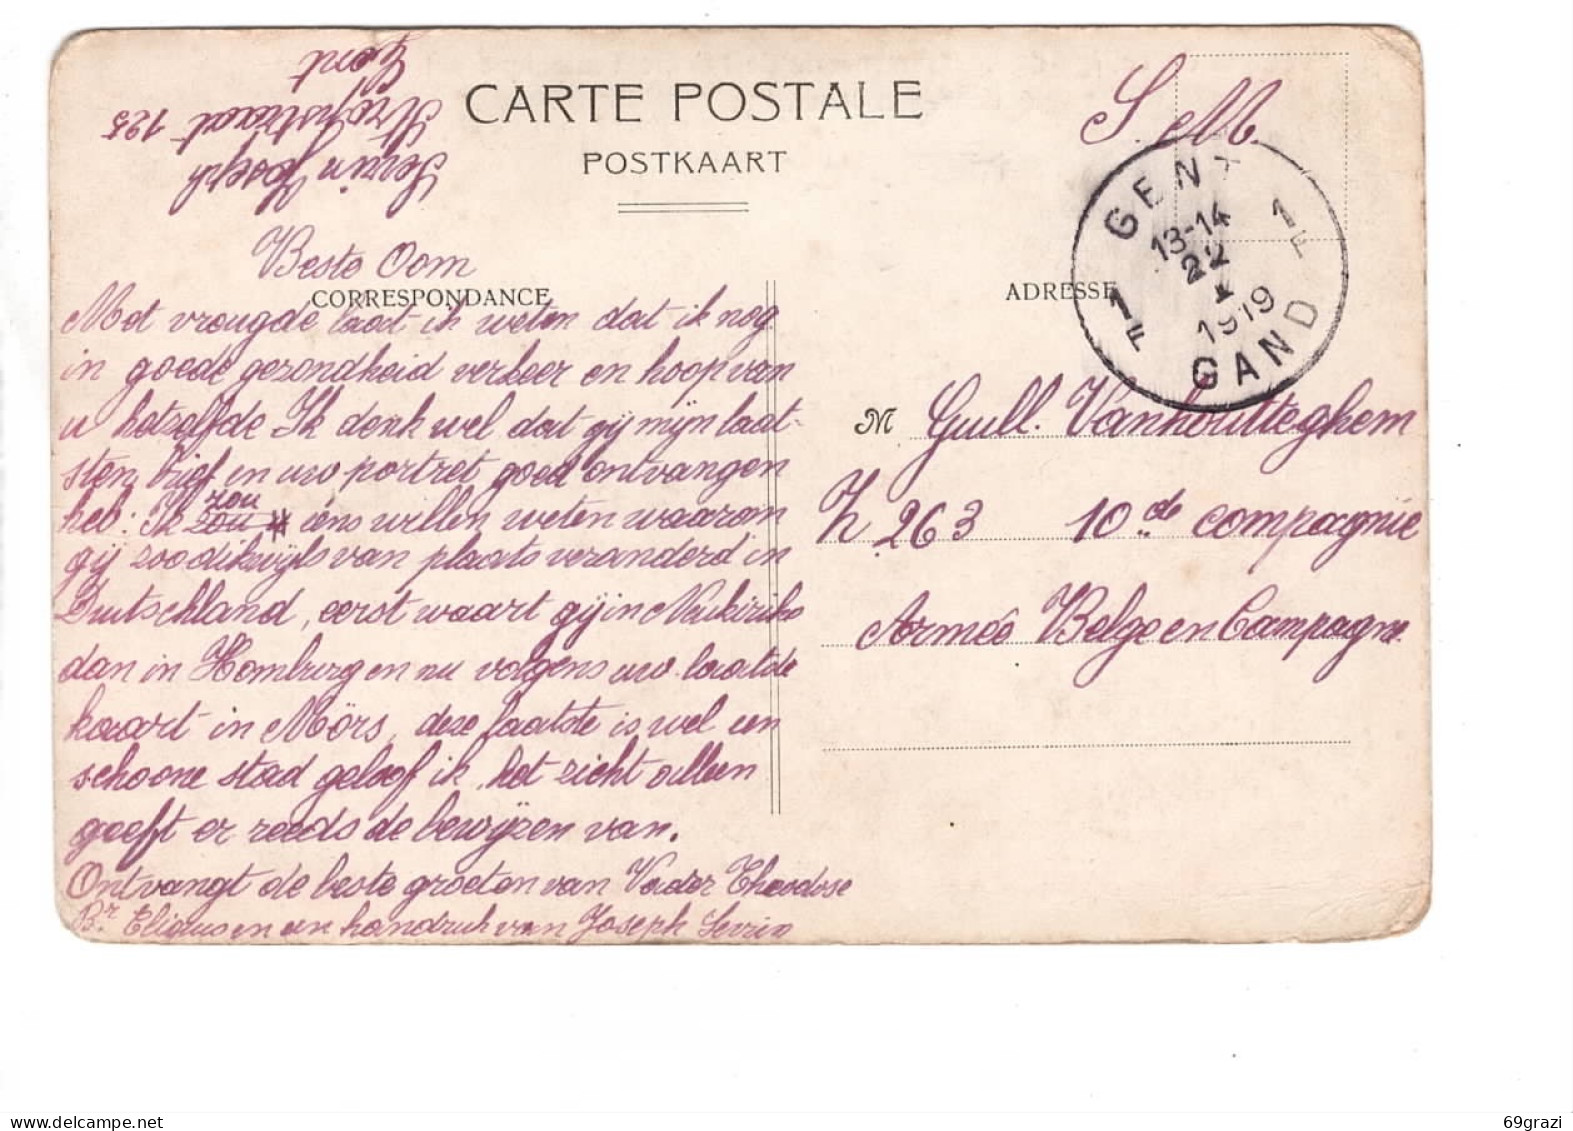 Sevrin Joseph
Krijgstraat 125
Gent
CARTE POSTALE
POSTKAART
S. M.
GENT
1F 1F
13-14
22
1919
GAND
Beste Oom
CORRESPONDANCE
ADRESSE
Met vreugde laat ik weten dat ik nog
in goede gezondheid verkeer en hoop van
u hetzelfde Ik denk wel dat gij mijn laat-
sten brief en uw portret goed ontvangen
heb: Ik zou eens willen weten waarom
gij zoodikwijls van plaats veranderd in
Duitschland, eerst waart gij in
dan in Homburg en nu volgens uw laatste
kaart in Mörs, deze laatste is wel een
schoone stad geloof ik, het zicht alleen
geeft er reeds de bewijzen van.
Ontvangt de beste groeten van Vader Theodose
Br Eligius en een handruk van Joseph Sevrin
M Guill. Vanhoutteghem
Z 263 10de compagnie
Armée Belge en Campagne
69grazi